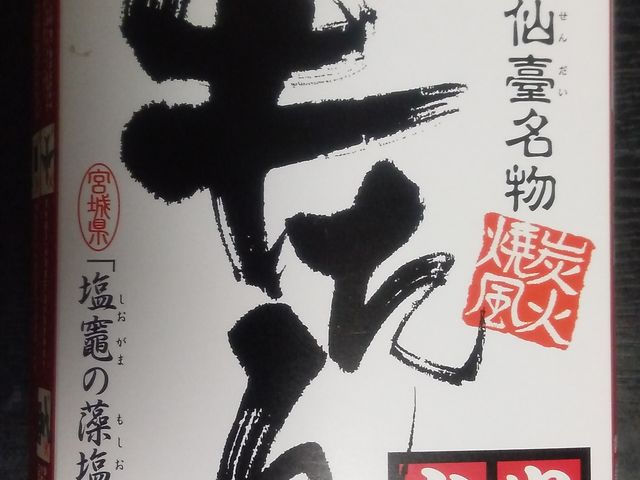 仙臺名物
せんだい
炭火
焼風
牛たん
宮城県
「塩竈の藻塩
しおがま もしお